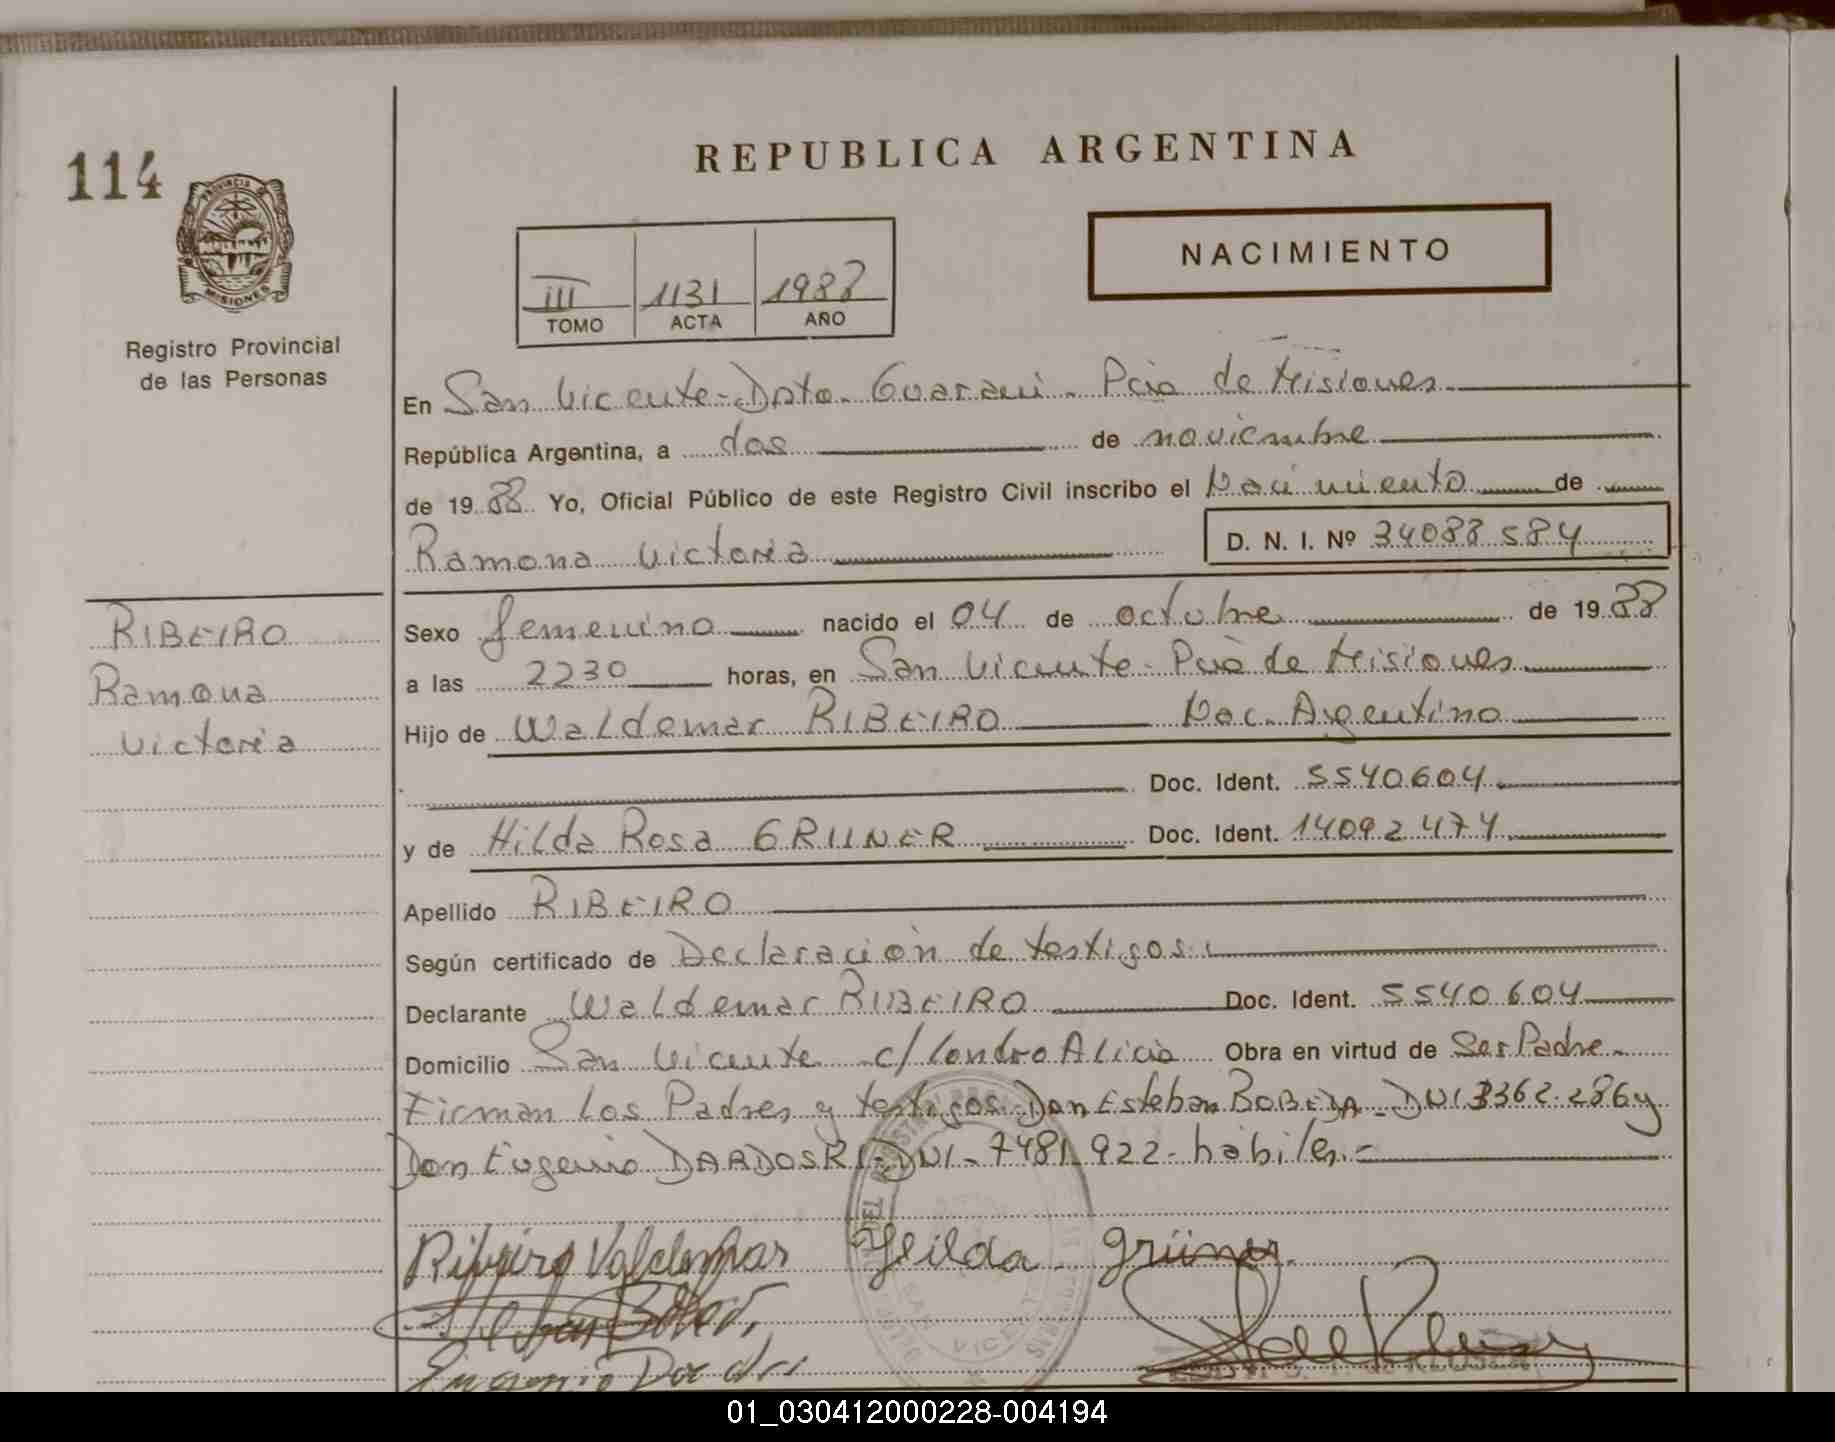 REPUBLICA ARGENTINA
114
PROVINCIA DE
MISIONES
Registro Provincial
de las Personas
III 1131 1988
TOMO ACTA AÑO
NACIMIENTO
En San Vicente - Dpto. Guarani - Pcia de Misiones
República Argentina, a dos de noviembre
de 19 88 Yo, Oficial Público de este Registro Civil inscribo el Nacimiento de
Ramona Victoria D. N. I. Nº 34088584
RIBEIRO
Ramona
Victoria
Sexo femenino nacido el 04 de octubre de 19 88
a las 2230 horas, en San Vicente - Pcia de Misiones
Hijo de Waldemar RIBEIRO Nac. Argentino
Doc. Ident. 5540604
y de Hilda Rosa GRUNER Doc. Ident. 14092474
Apellido RIBEIRO
Según certificado de Declaración de testigos
Declarante Waldemar RIBEIRO Doc. Ident. 5540604
Domicilio San Vicente c/ Londro Alicia Obra en virtud de Ser Padre
Firman los Padres y testigos: Don Esteban DNI 3362.286 y
Don Eugenio DARDOSKI - DNI - 7481.922 - hábiles.=
Ribeiro Valdemar Hilda Grüner
01_030412000228-004194